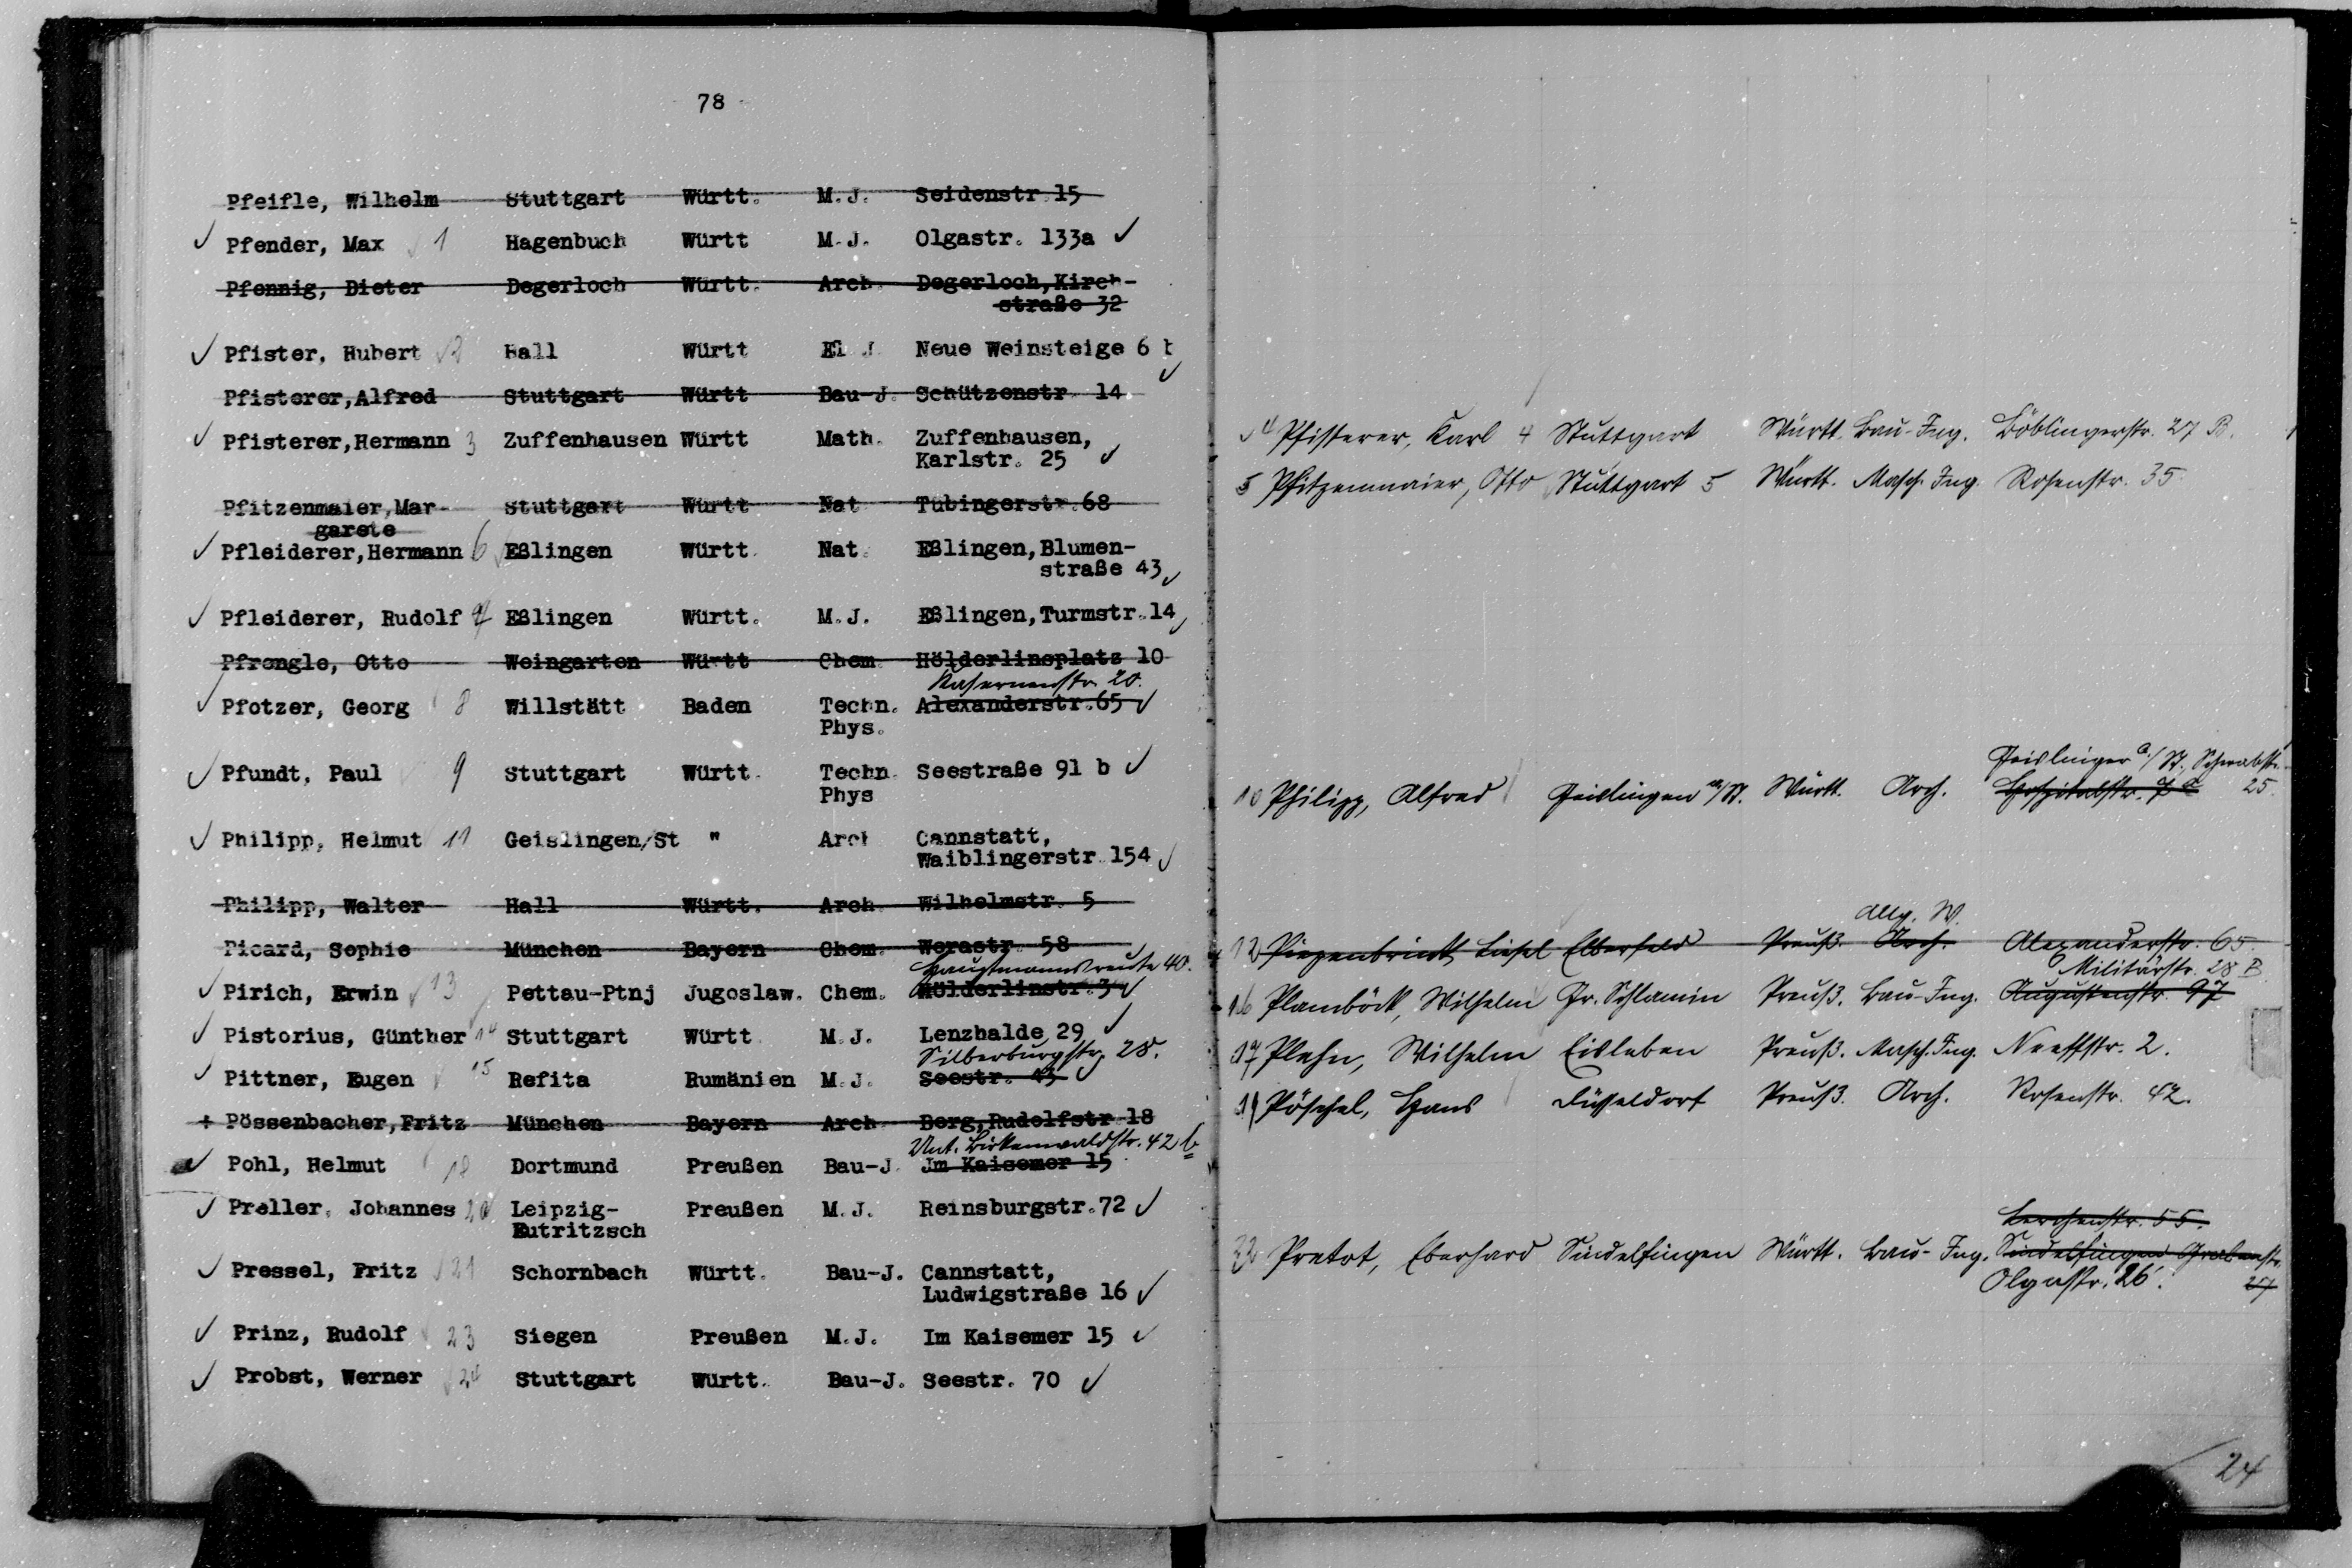 78
Pfeifle, Wilhelm Stuttgart Württ. M.J. Seidenstr 15
✓ Pfender, Max 1 Hagenbuch Württ M.J. Olgastr. 133a ✓
Pfennig, Dieter Degerloch Württ. Arch. Degerloch, Kirch-
straße 32
✓ Pfister, Hubert 2 Hall Württ El J. Neue Weinsteige 6 b ✓
Pfisterer, Alfred Stuttgart Württ Bau-J. Schützenstr. 14
✓ Pfisterer, Hermann 3 Zuffenhausen Württ Math. Zuffenhausen,
Karlstr. 25 ✓
Pfitzenmaier, Mar- Stuttgart Württ Nat Tübingerstr. 68
garete
✓ Pfleiderer, Hermann 6 Eßlingen Württ. Nat. Eßlingen, Blumen-
straße 43 ✓
✓ Pfleiderer, Rudolf 7 Eßlingen Württ. M.J. Eßlingen, Turmstr. 14 ✓
Pfrongle, Otto Weingarten Württ Chem. Hölderlinsplatz 10
Kasernenstr. 20.
✓ Pfotzer, Georg 8 Willstätt Baden Techn. Alexanderstr. 65 ✓
Phys.
✓ Pfundt, Paul 9 Stuttgart Württ. Techn. Seestraße 91 b ✓
Phys
✓ Philipp, Helmut 11 Geislingen/St " Arch Cannstatt,
Waiblingerstr. 154 ✓
Philipp, Walter Hall Württ. Arch. Wilhelmstr. 5
Picard, Sophie München Bayern Chem. Werastr. 58
Hauptmannsreute 40.
✓ Pirich, Erwin ✓ 13 Pettau-Ptnj Jugoslaw. Chem. Hölderlinstr. 3 ✓
✓ Pistorius, Günther 14 Stuttgart Württ M.J. Lenzhalde 29 ✓
Silberburgstr. 28.
✓ Pittner, Eugen 15 Refita Rumänien M.J. Seestr. 43 ✓
+ Pössenbacher, Fritz München Bayern Arch Berg, Rudolfstr. 18
Unt. Birkenwaldstr. 42 b
✓ Pohl, Helmut 18 Dortmund Preußen Bau-J. Jm Kaisemer 15
✓ Preller, Johannes 20 Leipzig- Preußen M.J. Reinsburgstr. 72 ✓
Eutritzsch
✓ Pressel, Fritz ✓ 21 Schornbach Württ. Bau-J. Cannstatt,
Ludwigstraße 16 ✓
✓ Prinz, Rudolf 23 Siegen Preußen M.J. Im Kaisemer 15 ✓
✓ Probst, Werner 24 Stuttgart Württ. Bau-J. Seestr. 70 ✓
✓ 4 Pfisterer, Karl 4 Stuttgart Württ. Bau-Ing. Böblingerstr. 27 B.
5 Pfitzenmaier, Otto Stuttgart 5 Württ. Masch. Ing. Rosenstr. 35
Geislingen a/St., Schwabstr.
10 Philipp, Alfred Geislingen a/St. Württ. Arch. Hospitalstr. 25.
Allg. W.
12 Liesel Elberfeld Preuß. Arch. Alexanderstr. 65.
Militärstr. 28 B
16 Plamböck, Wilhelm Gr. Schlamin Preuß. Bau-Ing. Augustenstr. 97
17 Plehn, Wilhelm Eisleben Preuß. Masch. Ing. Neeffstr. 2.
19 Pöschel, Hans Düsseldorf Preuß. Arch. Rosenstr. 42.
Lerchenstr. 55.
22 Pretot, Eberhard Sindelfingen Württ. Bau-Ing. Sindelfingen Grabenstr.
Olgastr. 26. 27
24